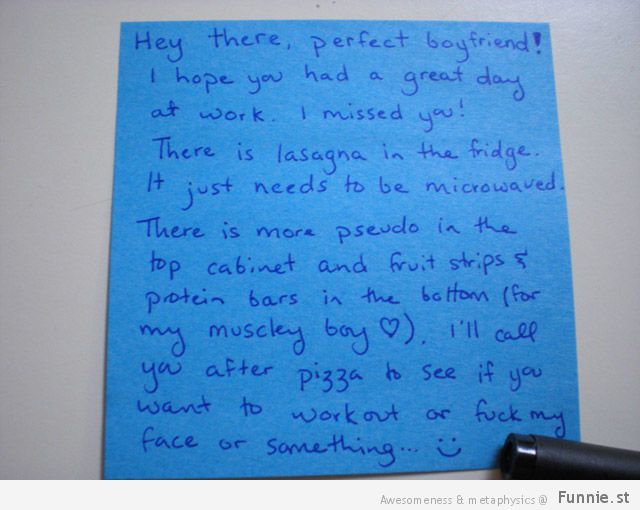 Hey there, perfect boyfriend!
I hope you had a great day
at work. I missed you!
There is lasagna in the fridge.
It just needs to be microwaved.
There is more pseudo in the
top cabinet and fruit strips &
protein bars in the bottom (for
my muscley boy ♡). I'll call
you after pizza to see if you
want to workout or fuck my
face or something... :)
Awesomeness & metaphysics @ Funnie.st